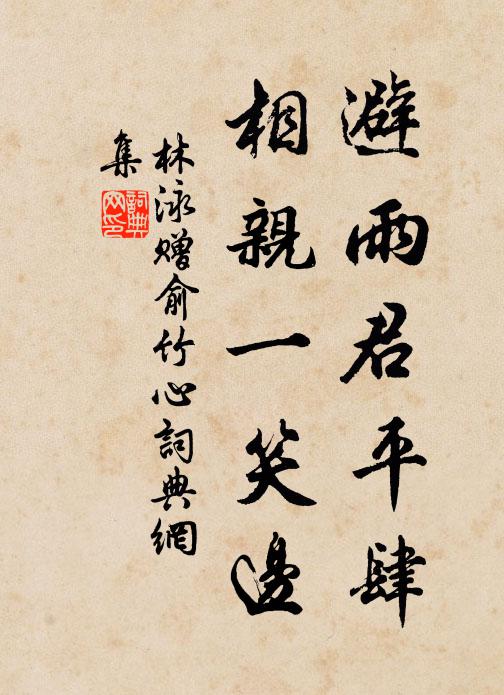 避雨君平肆
相親一笑邊
林泳贈俞竹心詞典網
集
詞典
网印